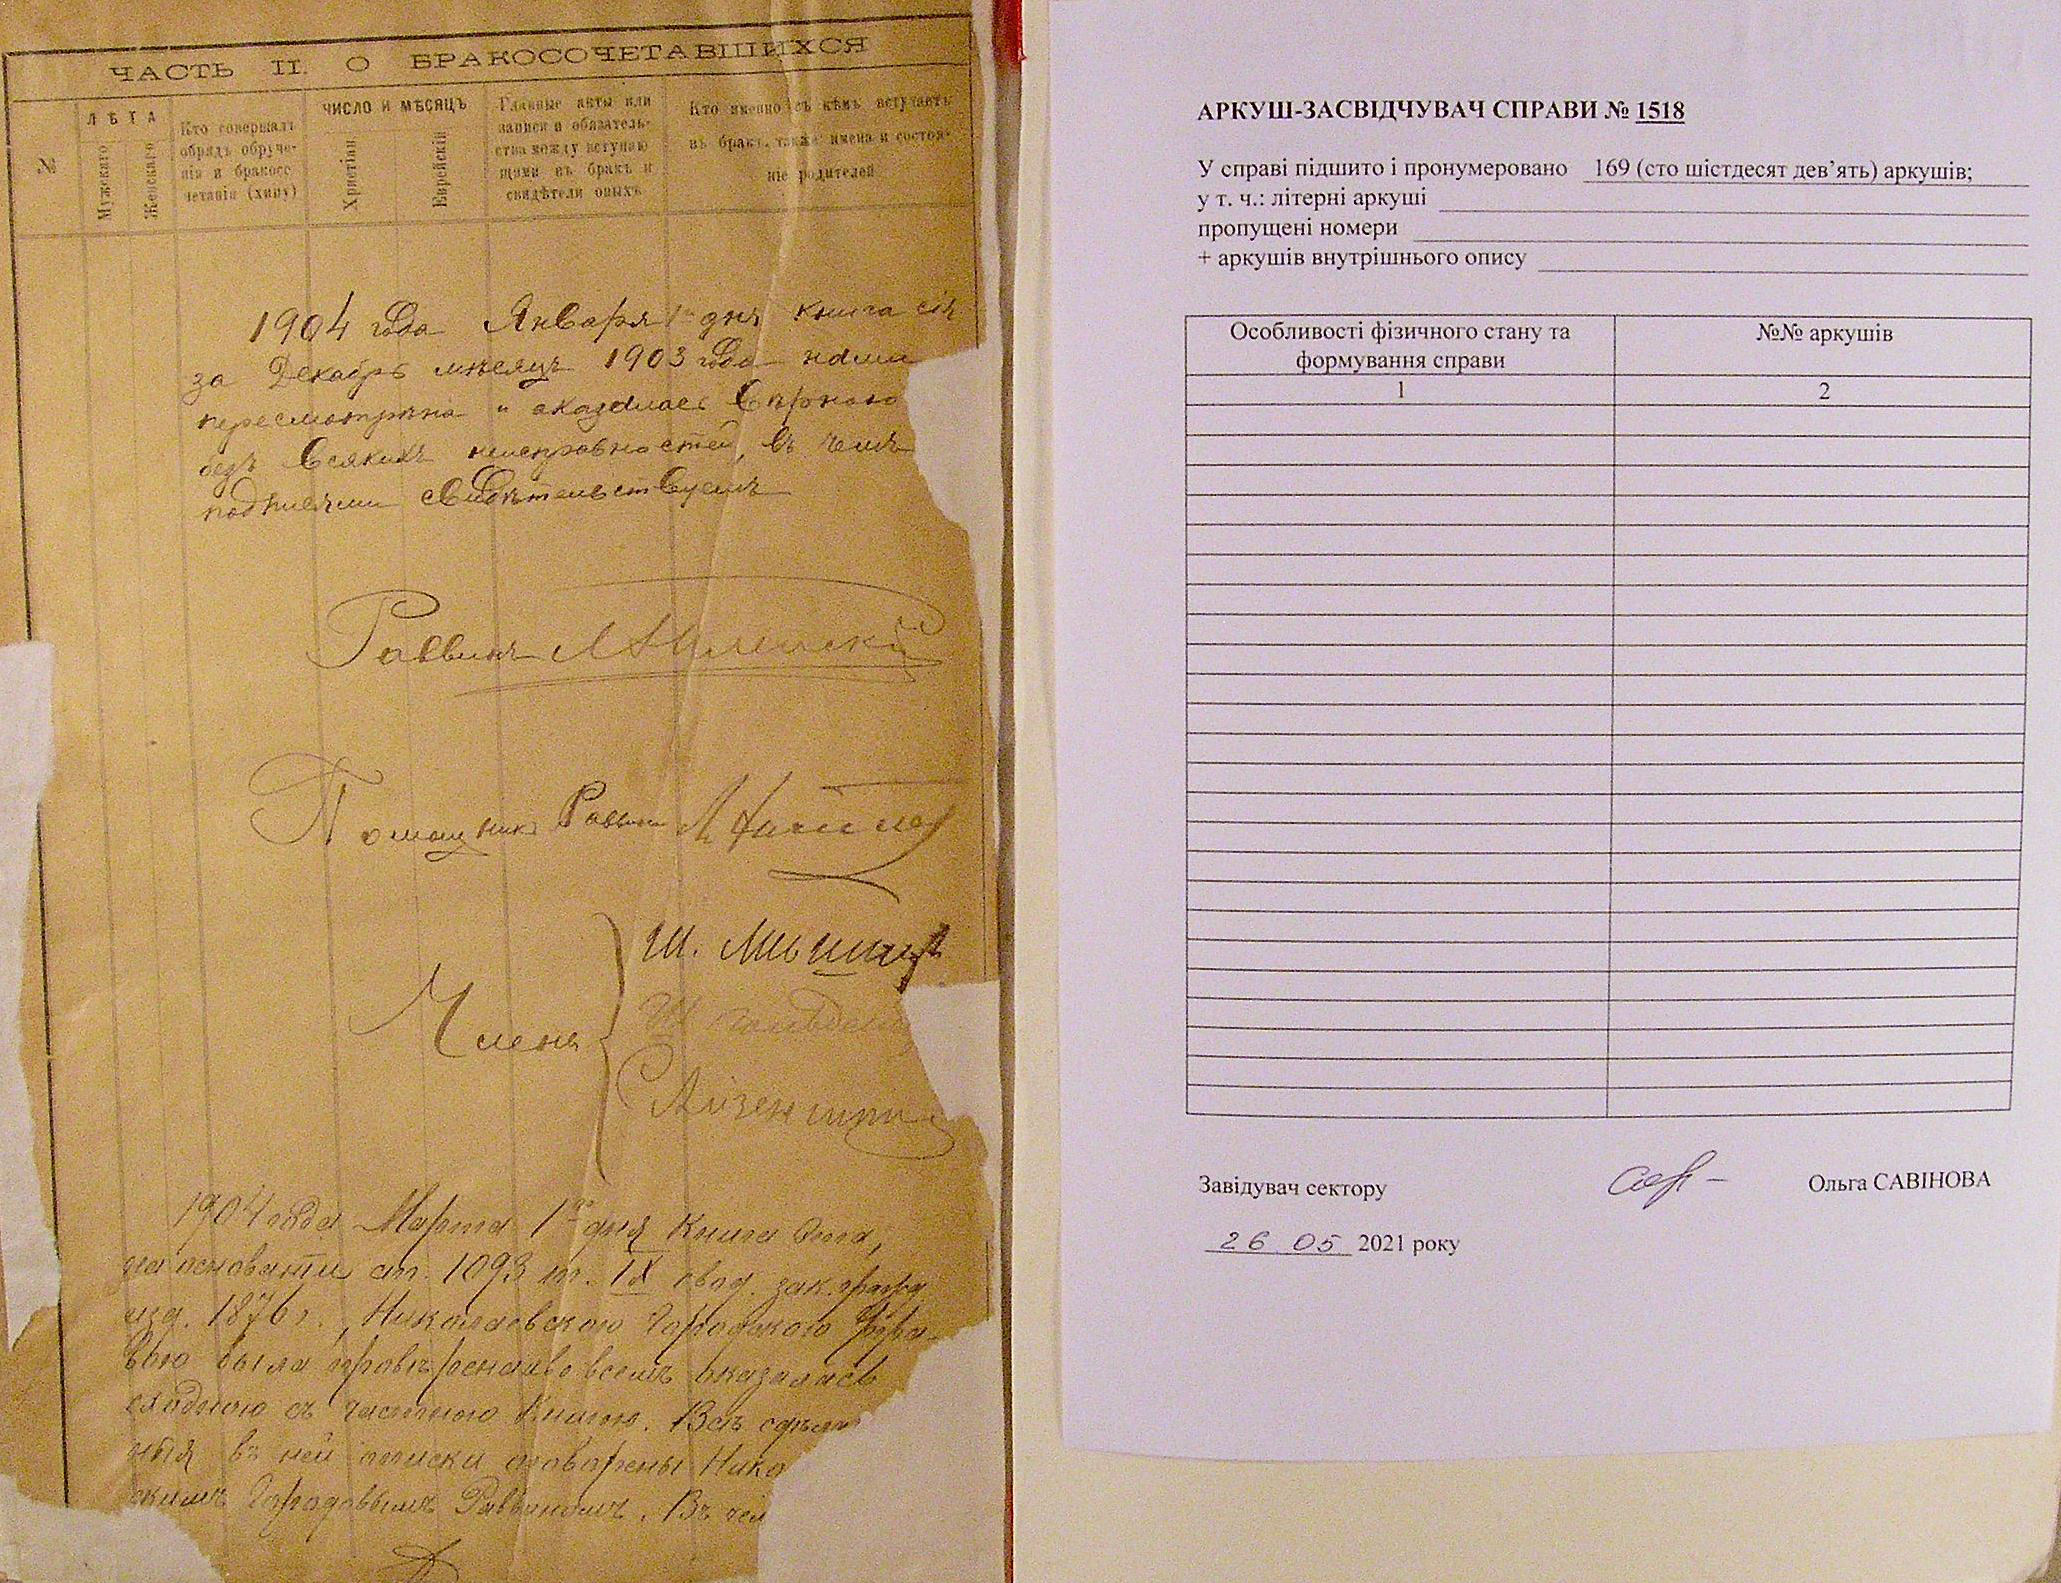 ЧАСТЬ II. О БРАКОСОЧЕТАВШИХСЯ
№
ЛѢТА
Мужескаго
Женскаго
Кто совершалъ
обрядъ обруче-
нія и бракосо
четанія (хипу)
ЧИСЛО И МѢСЯЦЪ
Христіан
Еврейскій
Главные акты или
записи и обязатель-
ства между вступаю
щими въ бракъ и
свидѣтели оныхъ
Кто именно съ кѣмъ вступаетъ
въ бракъ, также имена и состоя-
ніе родителей
1904 года Января 1го дня книга сія
за Декабрь мѣсяцъ 1903 года нами
пересмотрѣна и оказалась вѣрною
безъ всякихъ неисправностей, въ чемъ
подписями свидѣтельствуемъ
Раввинъ
Помощникъ Раввина
Члены
Ш.
1904 года Марта 1го дня книга эта,
на основаніи ст. 1093 т. IX свод. зак. гражд
изд. 1876 г., Николаевскою Городскою Упра-
вою была провѣрена и во всемъ оказалась
сходною съ частною книгою. Всѣ сдѣлан
ныя въ ней описки оговорены Нико
скимъ Городовымъ Раввиномъ. Въ чем
АРКУШ-ЗАСВІДЧУВАЧ СПРАВИ № 1518
У справі підшито і пронумеровано 169 (сто шістдесят дев’ять) аркушів;
у т. ч.: літерні аркуші
пропущені номери
+ аркушів внутрішнього опису
Особливості фізичного стану та
формування справи
№№ аркушів
1
2
Завідувач сектору
Ольга САВІНОВА
26 05 2021 року